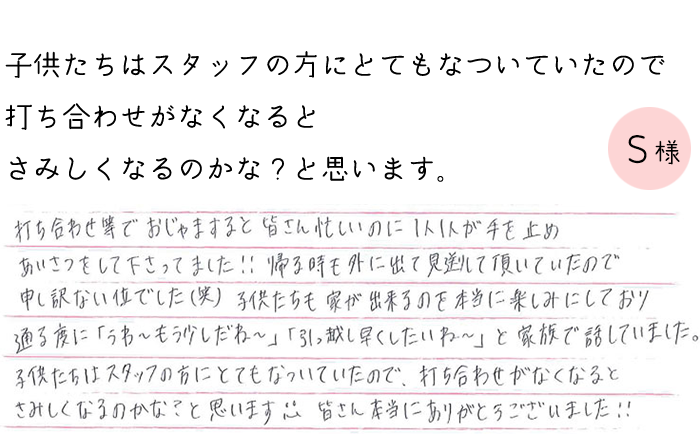 子供たちはスタッフの方にとてもなついていたので
打ち合わせがなくなると
さみしくなるのかな？と思います。
S様
打ち合わせ等でおじゃますると皆さん忙しいのに1人1人が手を止め
あいさつをして下さってました!! 帰る時も外に出て見送して頂いていたので
申し訳ない位でした(笑) 子供たちも家が出来るのを本当に楽しみにしており
通る度に「うわ〜もう少しだね〜」「引っ越し早くしたいね〜」と家族で話していました。
子供たちはスタッフの方にとてもなついていたので、打ち合わせがなくなると
さみしくなるのかな?と思います 皆さん本当にありがとうございました!!